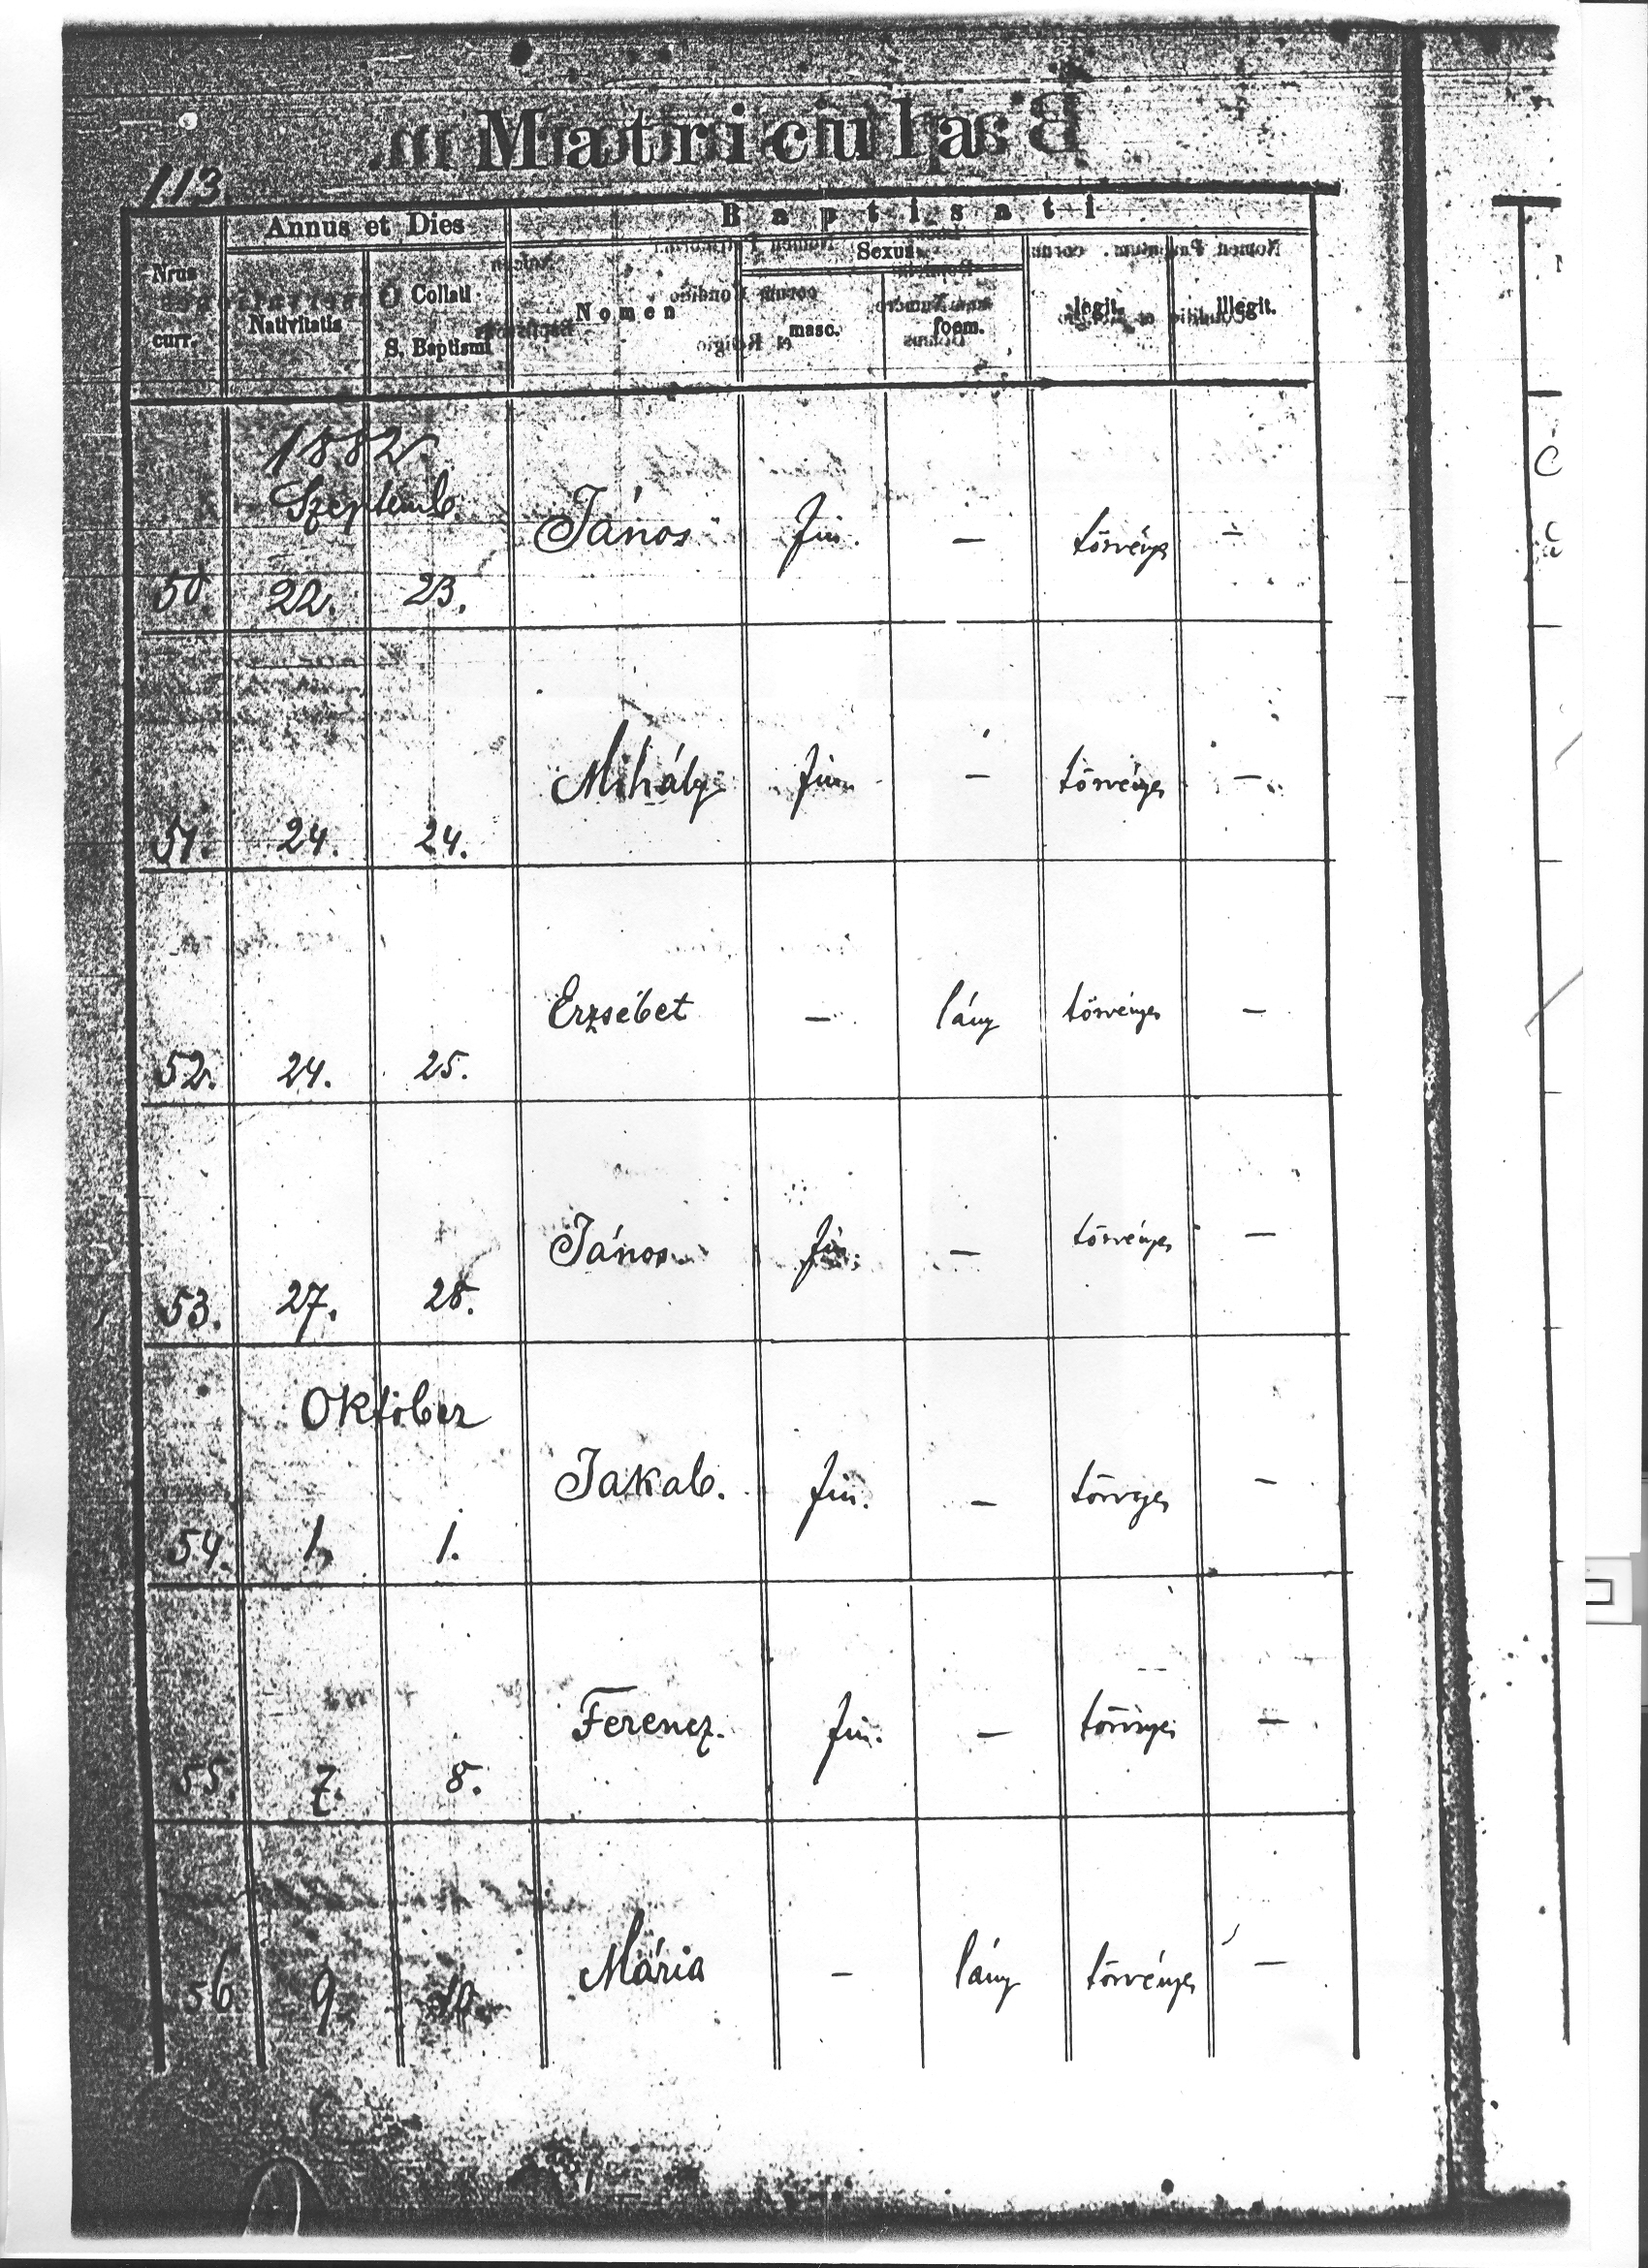 Matricula
113.
Annus et Dies
Baptisati
Nrus
curr.
Nativitatis
Collati
S. Baptismi
Nomen
Sexus
masc.
foem.
legit.
illegit.
1882
Szeptemb.
50. 22. 23. János fiu. — törvényes —
51. 24. 24. Mihály fiu — törvényes —
52. 24. 25. Erzsébet — lány törvényes —
53. 27. 28. János fiu. — törvényes —
Október
54. 1. 1. Jakab. fiu. — törvyes —
55 7. 8. Ferencz. fiu. — törvnyes —
56 9 10. Mária — lány törvényes —